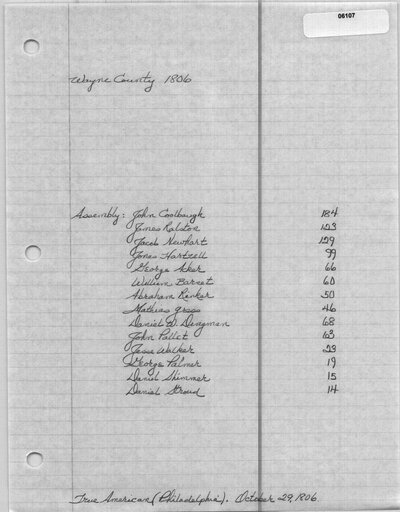 06107
Wayne County 1806
Assembly: John Coolbaugh 184
James Ralston 123
Jacob Newhart 129
Jonas Hartzell 99
George Acker 66
William Barnet 60
Abraham Rinker 50
Mathias Gress 46
Daniel W. Dingman 68
John Pallet 63
Jesse Walker 23
George Palmer 19
Daniel Shimmer 15
Daniel Stroud 14
True American (Philadelphia). October 29, 1806